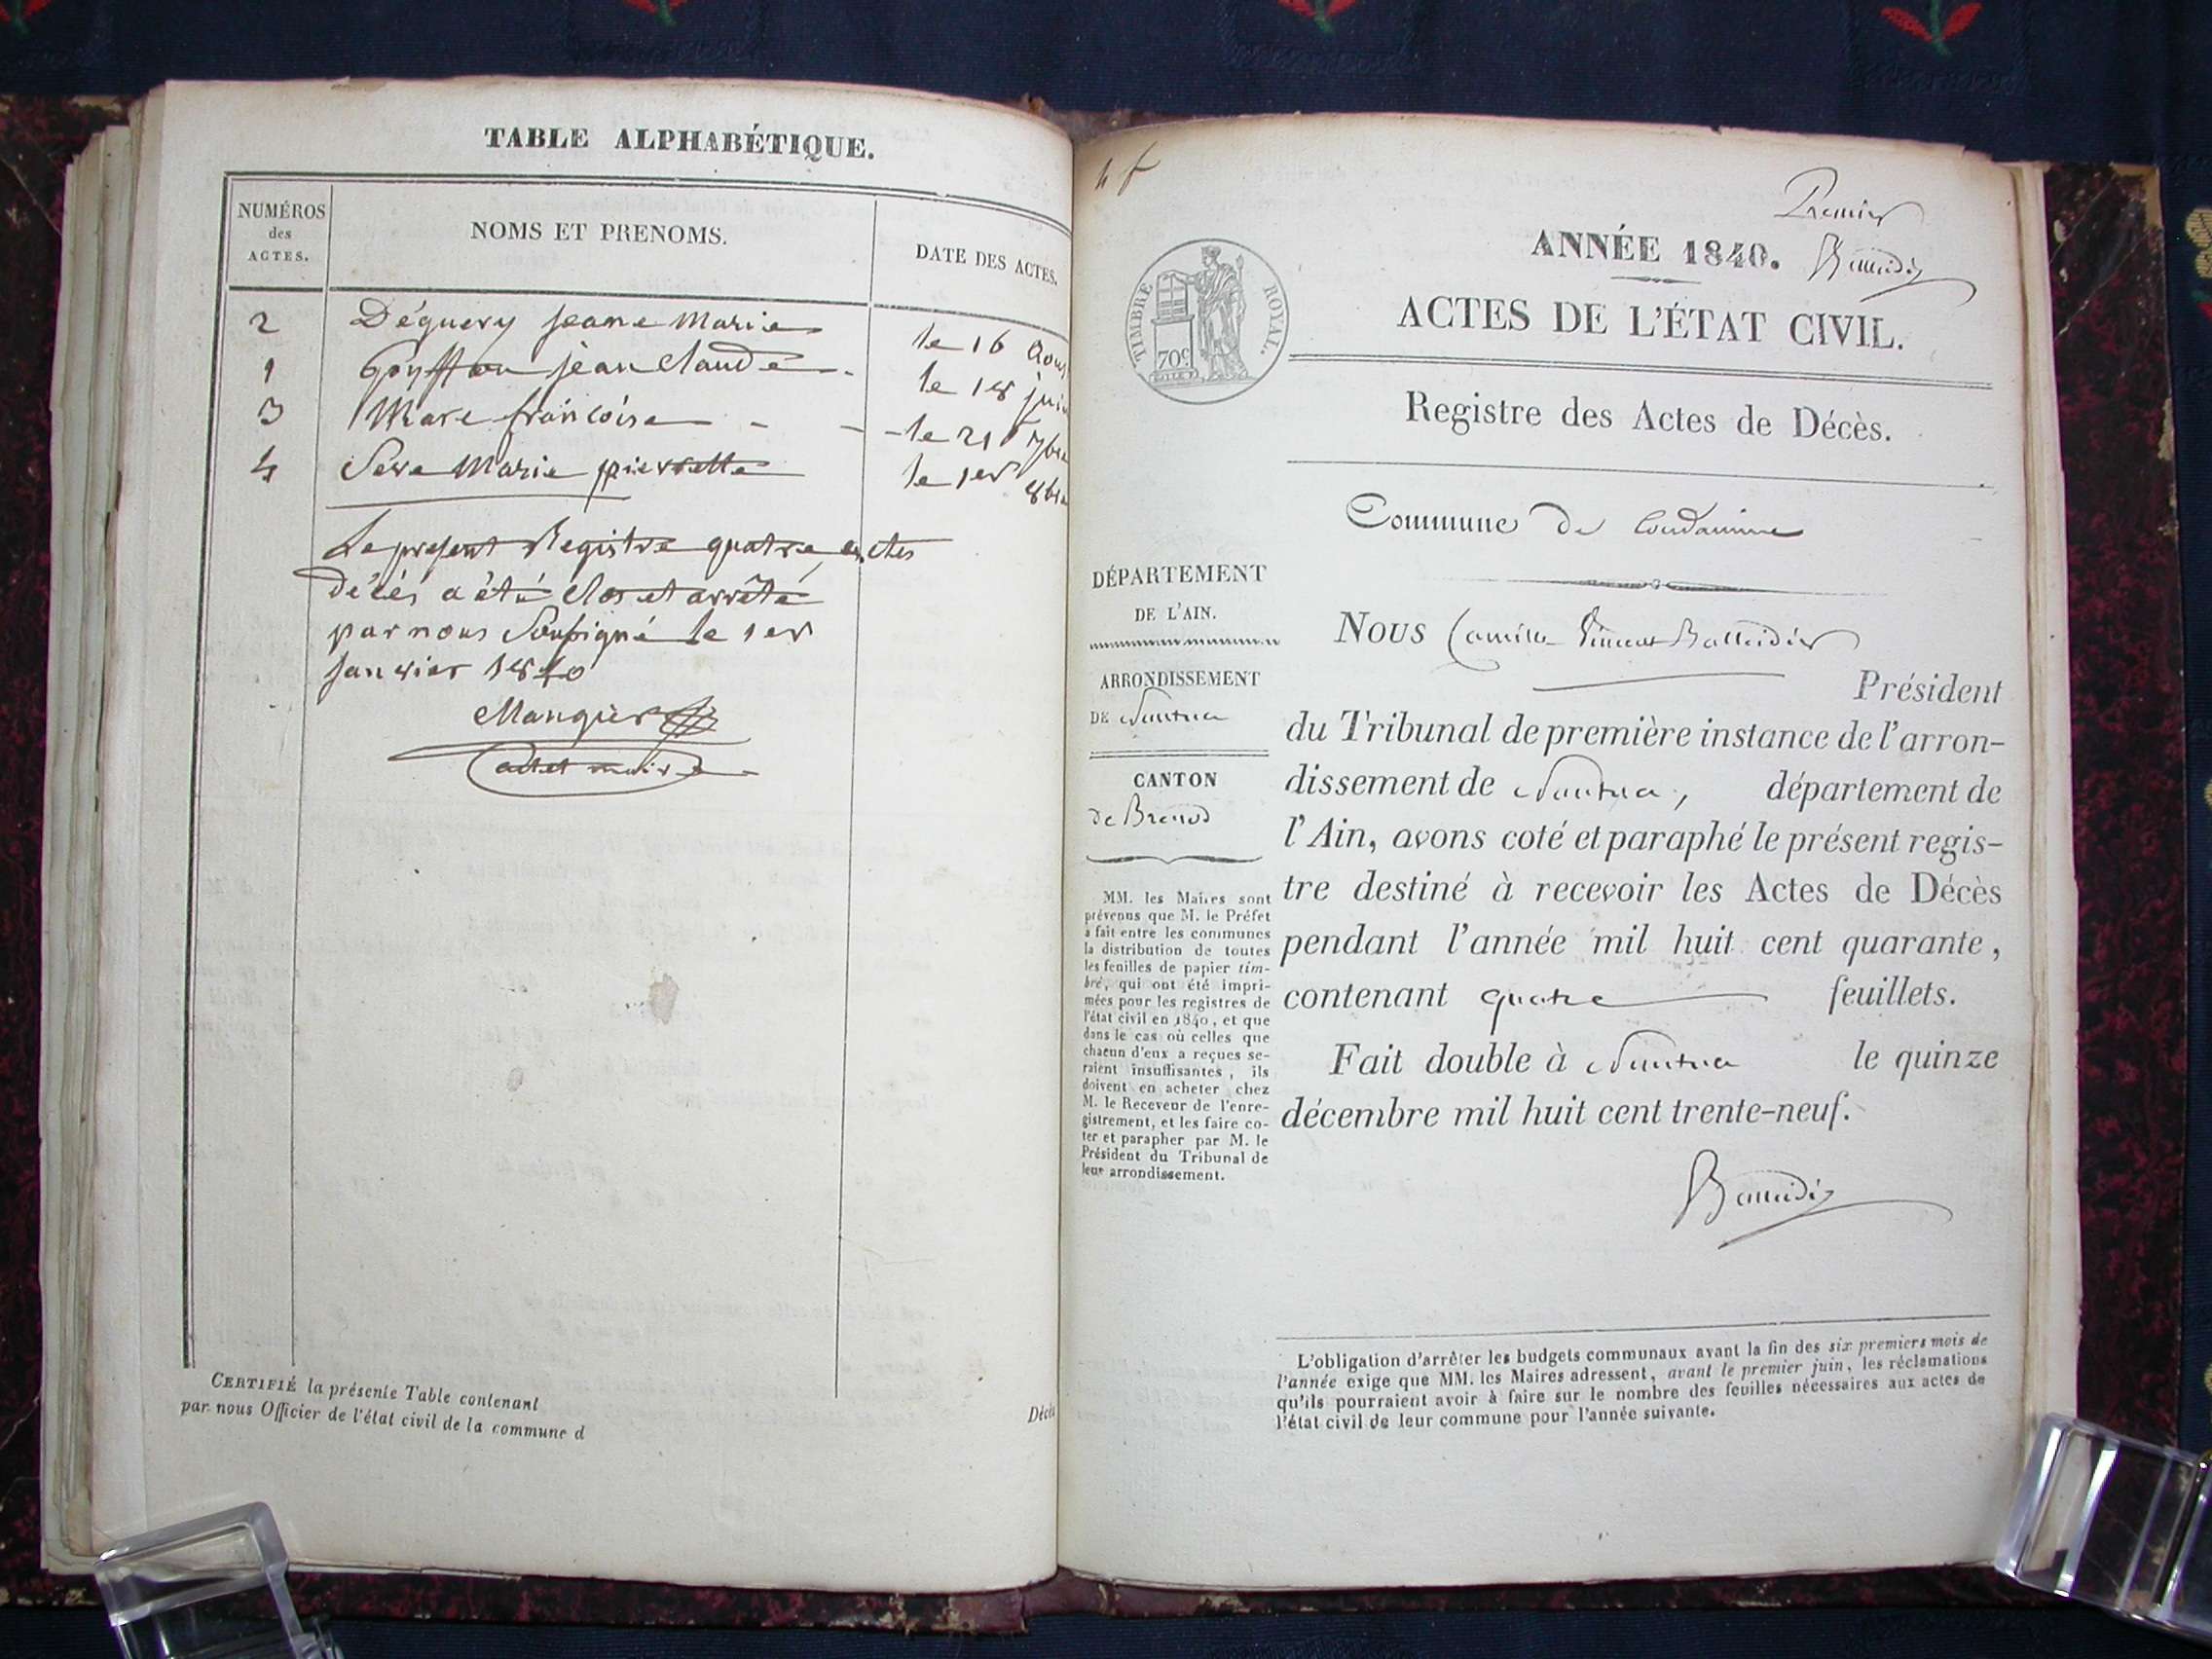 TABLE ALPHABÉTIQUE.
NUMÉROS
des
ACTES.
NOMS ET PRENOMS.
DATE DES ACTES.
2 Déguery jeane Marie le 16 Aous
1 Goyffon jean Claude le 18 jui
3 Mare francoise - - - le 21 7bre
4 Seve Marie pierrette le 1er 8bre
Le present Registre quatre actes
décés a été clos et arrêté
par nous Soussigné le 1er
Janvier 1840
Mangier
adct maire
CERTIFIÉ la présente Table contenant
par nous Officier de l'état civil de la commune d
Décès
4 f
Premier
ANNÉE 1840.
TIMBRE ROYAL.
70c
ACTES DE L'ÉTAT CIVIL.
Registre des Actes de Décès.
Commune de Condamine
DÉPARTEMENT
DE L'AIN.
ARRONDISSEMENT
DE Nantua
CANTON
de Brenod
MM. les Maires sont
prévenus que M. le Préfet
a fait entre les communes
la distribution de toutes
les feuilles de papier tim-
bré, qui ont été impri-
mées pour les registres de
l'état civil en 1840, et que
dans le cas où celles que
chacun d'eux a reçues se-
raient insuffisantes, ils
doivent en acheter chez
M. le Receveur de l'enre-
gistrement, et les faire co-
ter et parapher par M. le
Président du Tribunal de
leur arrondissement.
NOUS Camille Vincent Balleidier
Président
du Tribunal de première instance de l'arron-
dissement de Nantua, département de
l'Ain, avons coté et paraphé le présent regis-
tre destiné à recevoir les Actes de Décès
pendant l'année mil huit cent quarante,
contenant quatre feuillets.
Fait double à Nantua le quinze
décembre mil huit cent trente-neuf.
L'obligation d'arrêter les budgets communaux avant la fin des six premiers mois de
l'année exige que MM. les Maires adressent, avant le premier juin, les réclamations
qu'ils pourraient avoir à faire sur le nombre des feuilles nécessaires aux actes de
l'état civil de leur commune pour l'année suivante.